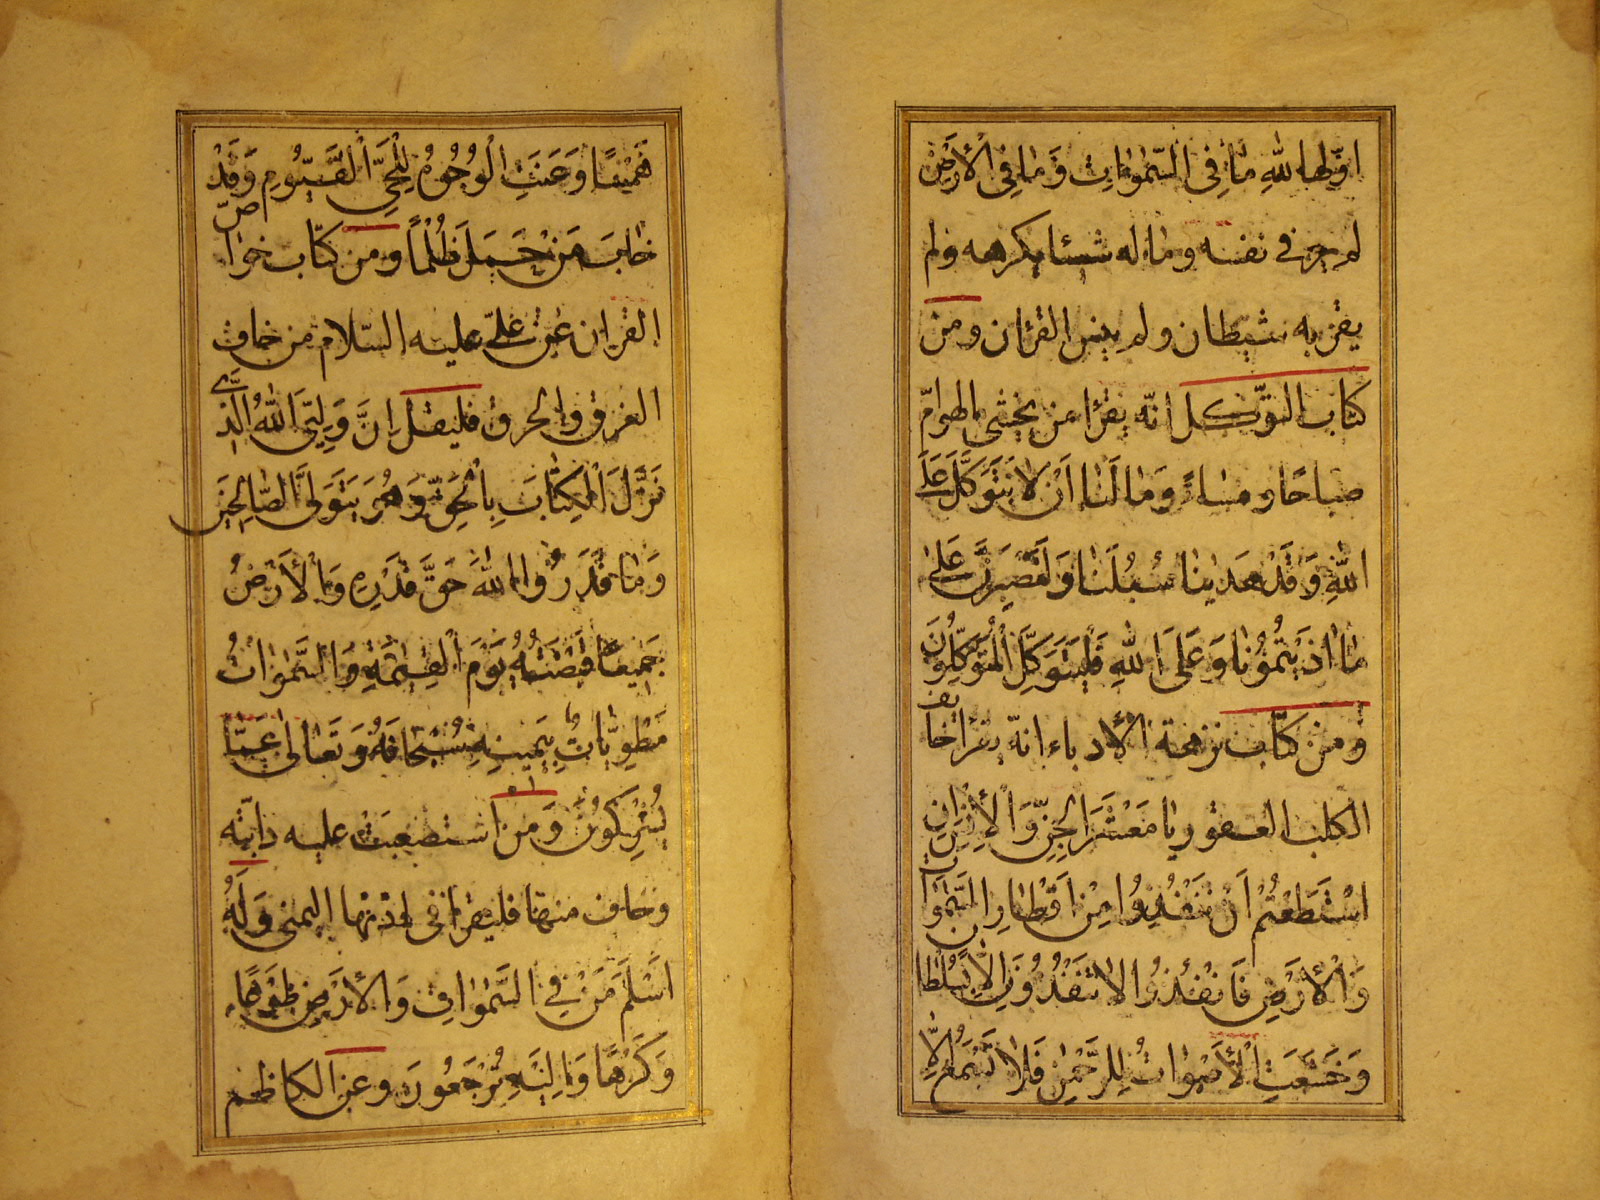 اوّلها لله ما في السّموات وَما في الأرض
لم ير في نفسه وماله شيئا يكرهه ولم
يقربه شيطان ولم ينس القرٰان ومن
كتاب التوّكل انّه يقرٔا من يخشى الهوامّ
صباحًا و مساءً وَمٰا لَنٰا اَنْ لاٰ نَتَوَكَّلَ عَلَى
اللّٰهِ وَقَدْ هَدٰينٰا سُبُلَنٰا وَلَنَصْبِرَنَّ عَلىٰ
مٰا اٰذَيْتُمُونٰا وَعَلَى اللّٰهِ فَلْيَتَوَكَّلِ الْمُتَوَكِّلُونَ
ومن كتاب نزهة الأدباء انّه يقرٔا خايف
الكلب العقور يٰا مَعْشَرَ الْجِنِّ وَالْأِنْسِ اِنِ
اسْتَطَعْتُمْ اَنْ تَنْفُذُوا مِنْ اَقْطٰارِ السَّمٰوٰاتِ
وَالْأَرْضِ فَانْفُذُوا لاٰ تَنْفُذُونَ اِلاّٰ بِسُلْطٰانٍ
وَخَشَعَتِ الْأَصْوٰاتُ لِلرَّحْمٰنِ فَلاٰ تَسْمَعُ اِلاّٰ
هَمْسًا وَعَنَتِ الْوُجُوهُ لِلْحَيِّ الْقَيُّومِ وَقَدْ
خٰابَ مَنْ حَمَلَ ظُلْمًا ومن كتاب خواصّ
القرٰان عن علىّ عليه السّلام من خاف
الغرق والحرق فليقل اِنَّ وَلِيِّىَ اللّٰهُ الَّذى
نَزَّلَ الْكِتٰابَ بِالْحَقِّ وَهُوَ يَتَوَلَّى الصّٰالِحينَ
وَمٰا قَدَرُوا اللّٰهَ حَقَّ قَدْرِهِ وَالْأَرْضُ
جَميعًا قَبْضَتُهُ يَوْمَ الْقِيٰمَةِ وَالسَّمٰوٰاتُ
مَطْوِيّٰاتٌ بِيَمينِهِ سُبْحٰانَهُ وَتَعٰالىٰ عَمّٰا
يُشْرِكُونَ وَمن استصعبت عليه دابّته
وخاف منها فليقرٔا في اذنها اليمنى وَلَهُ
اَسْلَمَ مَنْ فِى السَّمٰوٰاتِ وَالْأَرْضِ طَوْعًا
وَكَرْهًا وَاِلَيْهِ تُرْجَعُونَ وعن الكاظم